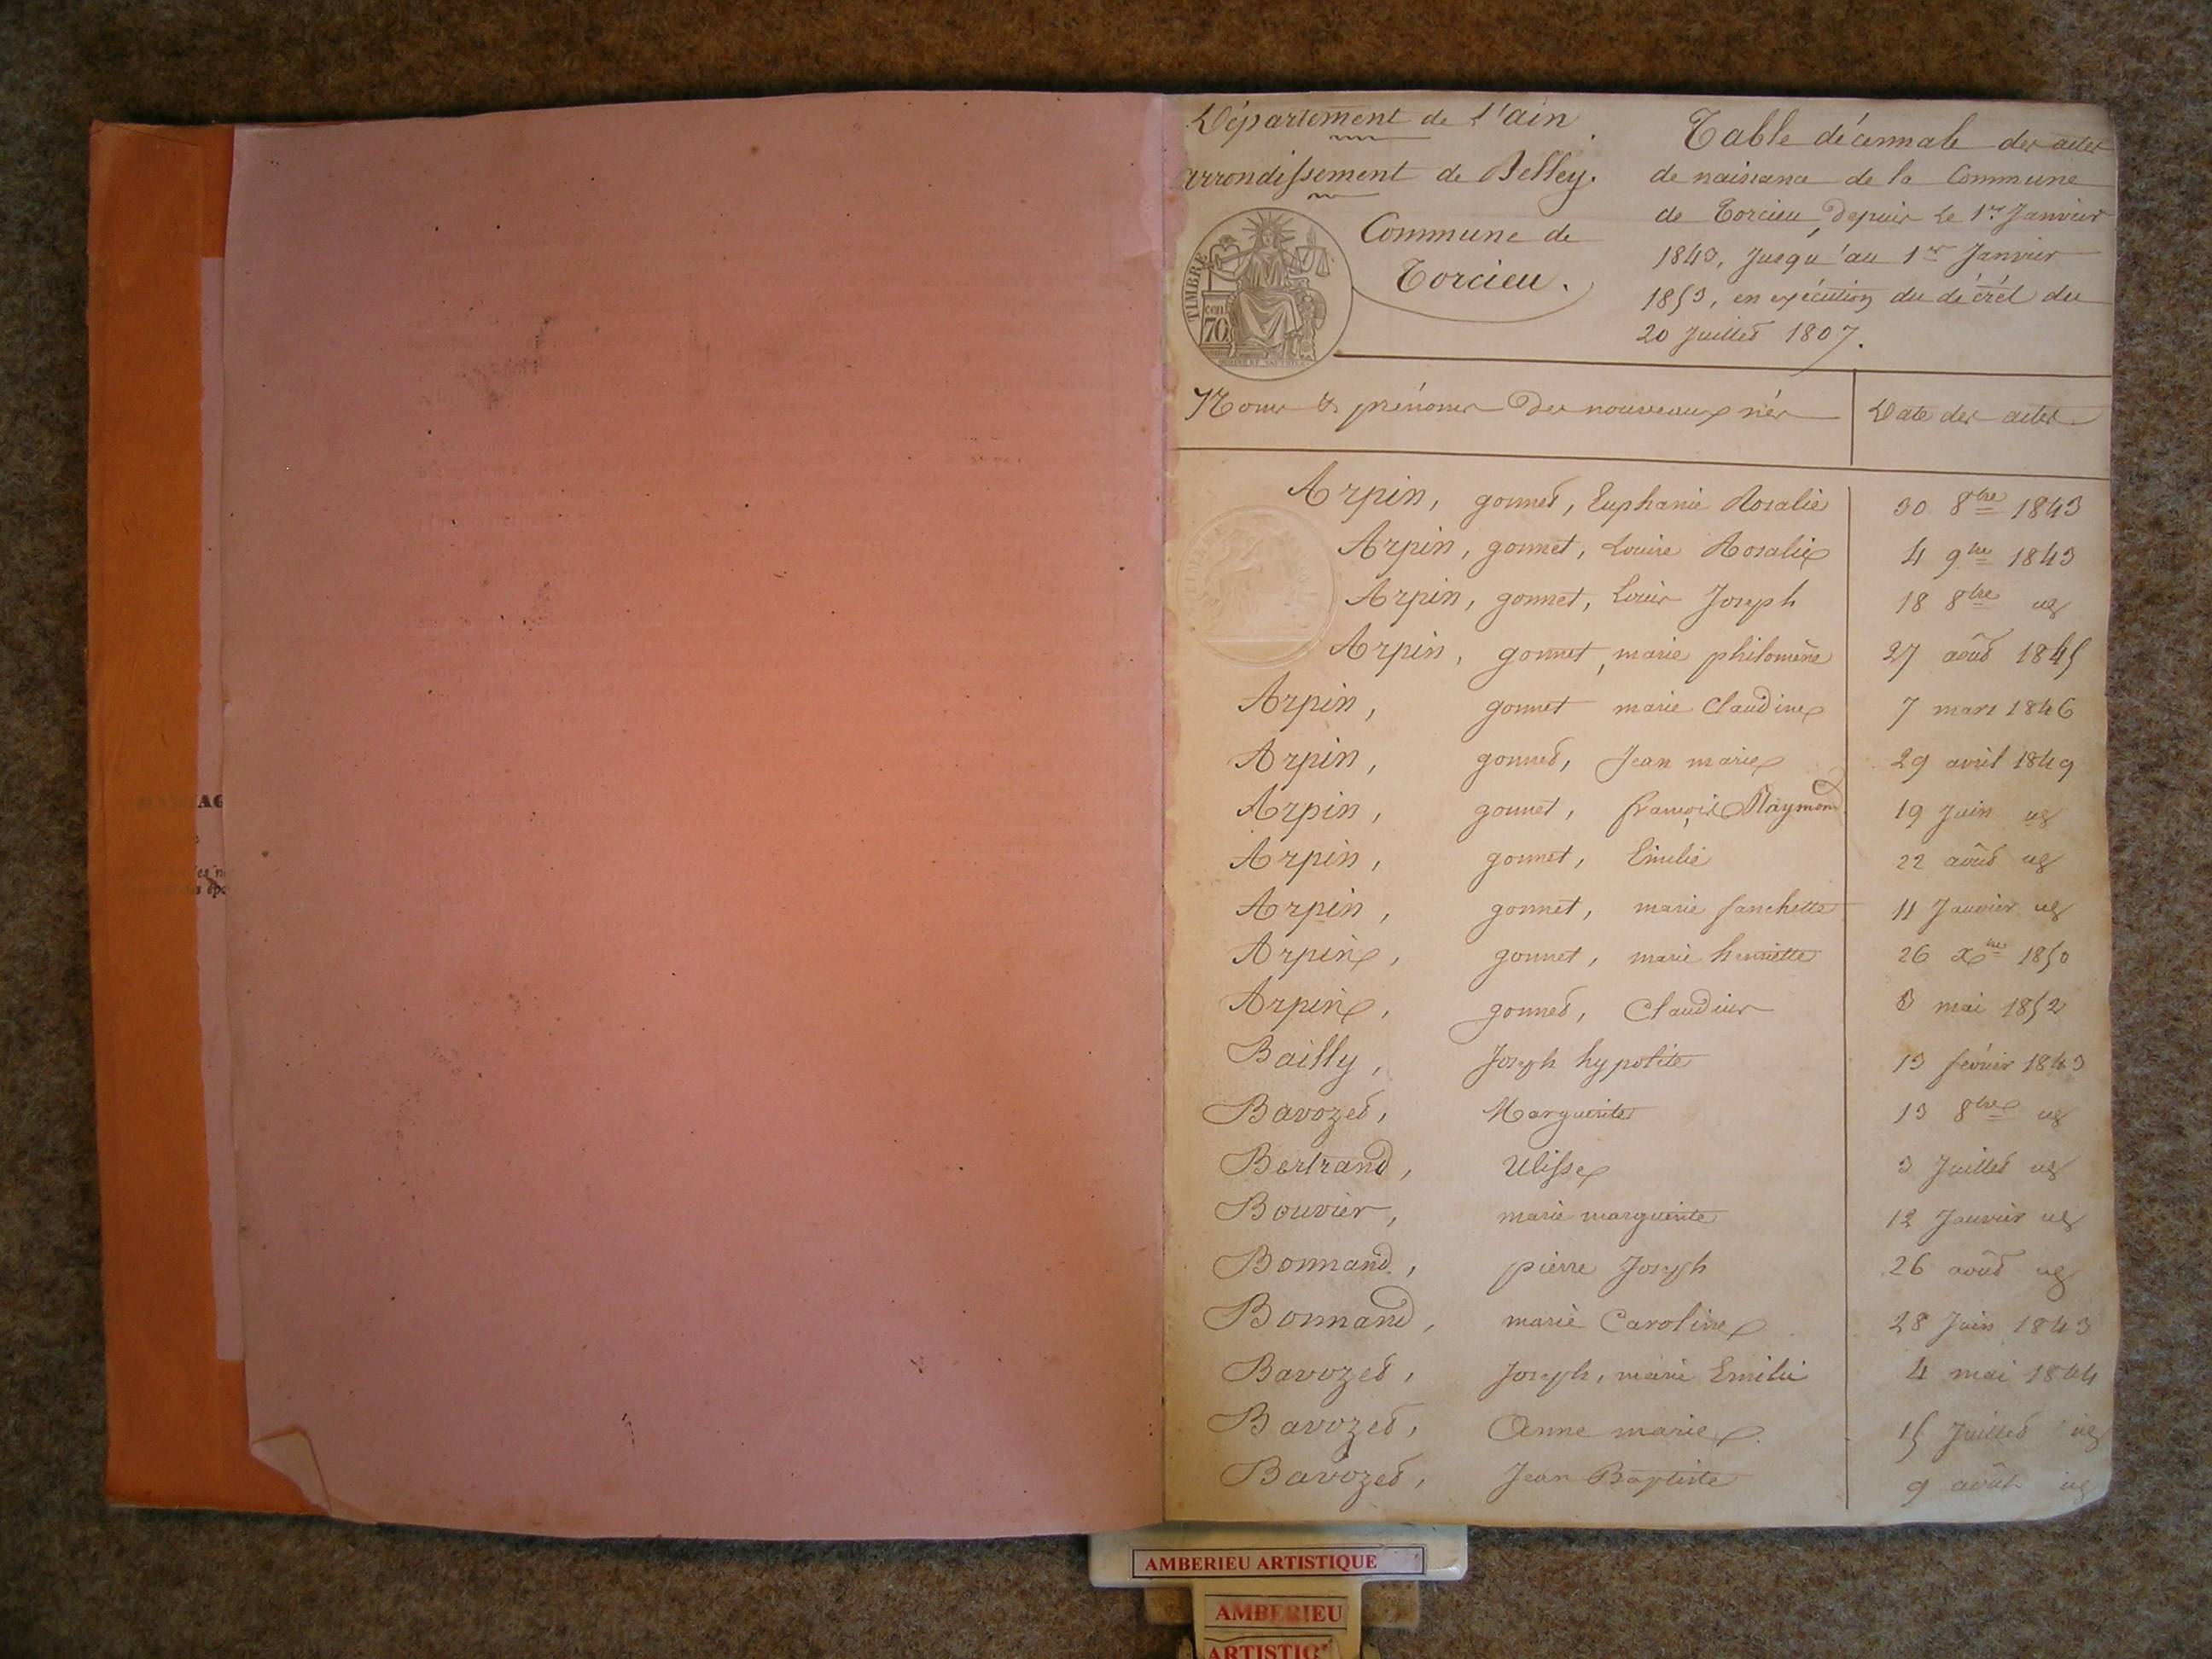 Département de l'ain
arrondissement de Belley.
Commune de
Torcieu.
TIMBRE
cen.
70
Table décennale des actes
de naissance de la Commune
de Torcieu, depuis le 1er Janvier
1843, Jusqu'au 1er Janvier
1853, en exécution du décrèt du
20 Juillet 1807.
Noms & prénoms des nouveaux nés Date des actes
Arpin, gonnet, Euphanie Rosalie 30 8bre 1843
Arpin, gonnet, Louise Rosalie 4 9bre 1843
Arpin, gonnet, Louis Joseph 18 8bre id
Arpin, gonnet, marie philomène 27 août 1845
Arpin, gonnet marie Claudine 7 mars 1846
Arpin, gonnet, Jean marie 29 avril 1849
Arpin, gonnet, françois Raymond 19 Juin id
Arpin, gonnet, Emilie 22 août id
Arpin, gonnet, marie fanchette 11 Janvier id
Arpin, gonnet, marie henriette 26 Xbre 1850
Arpin, gonnet, Claudius 8 mai 1852
Bailly, Joseph hypolite 13 février 1843
Bavozet, Marguerite 13 8bre id
Bertrand, Ulisse 3 Juillet id
Bouvier, marie marguerite 12 Janvier id
Bonnand, pierre Joseph 26 août id
Bonnand, marie Caroline 28 Juin 1843
Bavozet, Joseph, marie Emilie 4 mai 1844
Bavozet, Anne marie 15 Juillet id
Bavozet, Jean Baptiste 9 août id
AMBERIEU ARTISTIQUE
AMBERIEU
ARTISTIQ